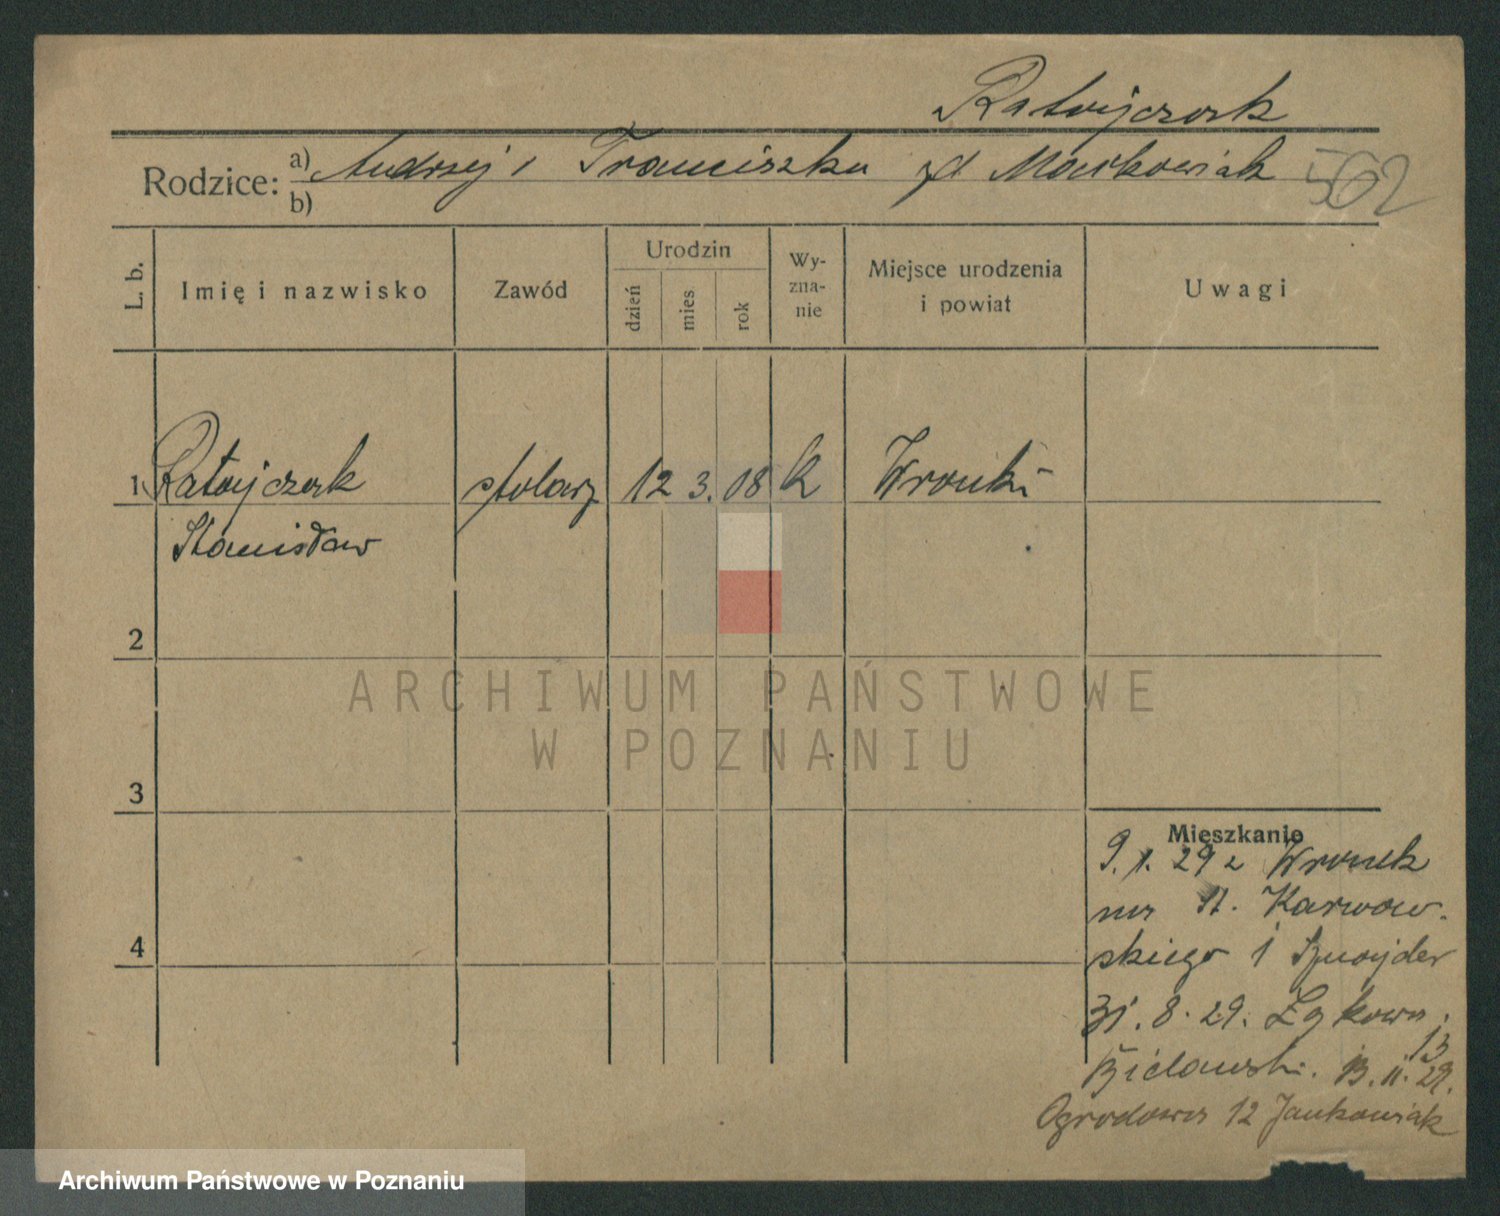 Ratajczak
Rodzice: a) Andrzej i Franciszka zd Maćkowiak 562
b)
L. b. Imię i nazwisko Zawód Urodzin dzień mies rok Wyznanie Miejsce urodzenia i powiat Uwagi
1 Ratajczak stolarz 12 3. 08 k Wronki
Stanisław
2
ARCHIWUM PAŃSTWOWE
W POZNANIU
3
Mieszkanie
9. 1. 29 z Wronek
na St. Karwow-
skiego 1 Sznajder
31. 8. 29. Łąkowa
13
Bielawski. 13. 11. 29.
Ogrodowa 12 Jankowiak
4
Archiwum Państwowe w Poznaniu